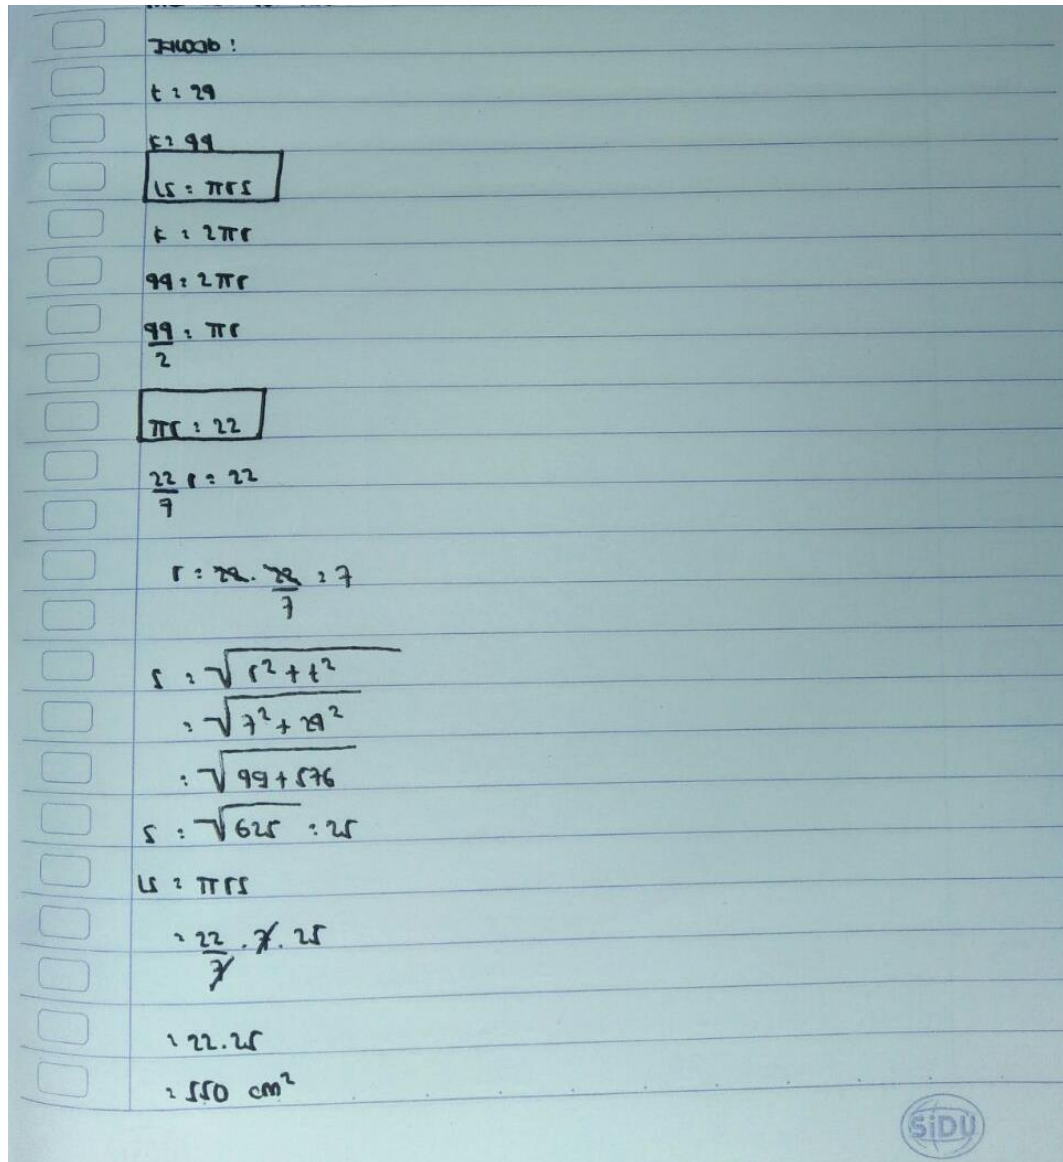 Jawab :
t = 24
k = 44
LS = πrs
k = 2πr
44 = 2πr
44/2 = πr
πr = 22
22/7 r = 22
r = 22 . 22/7 = 7
s = √r² + t²
= √7² + 24²
= √49 + 576
s = √625 = 25
LS = πrs
= 22/7 . 7 . 25
= 22 . 25
= 550 cm²
SiDU